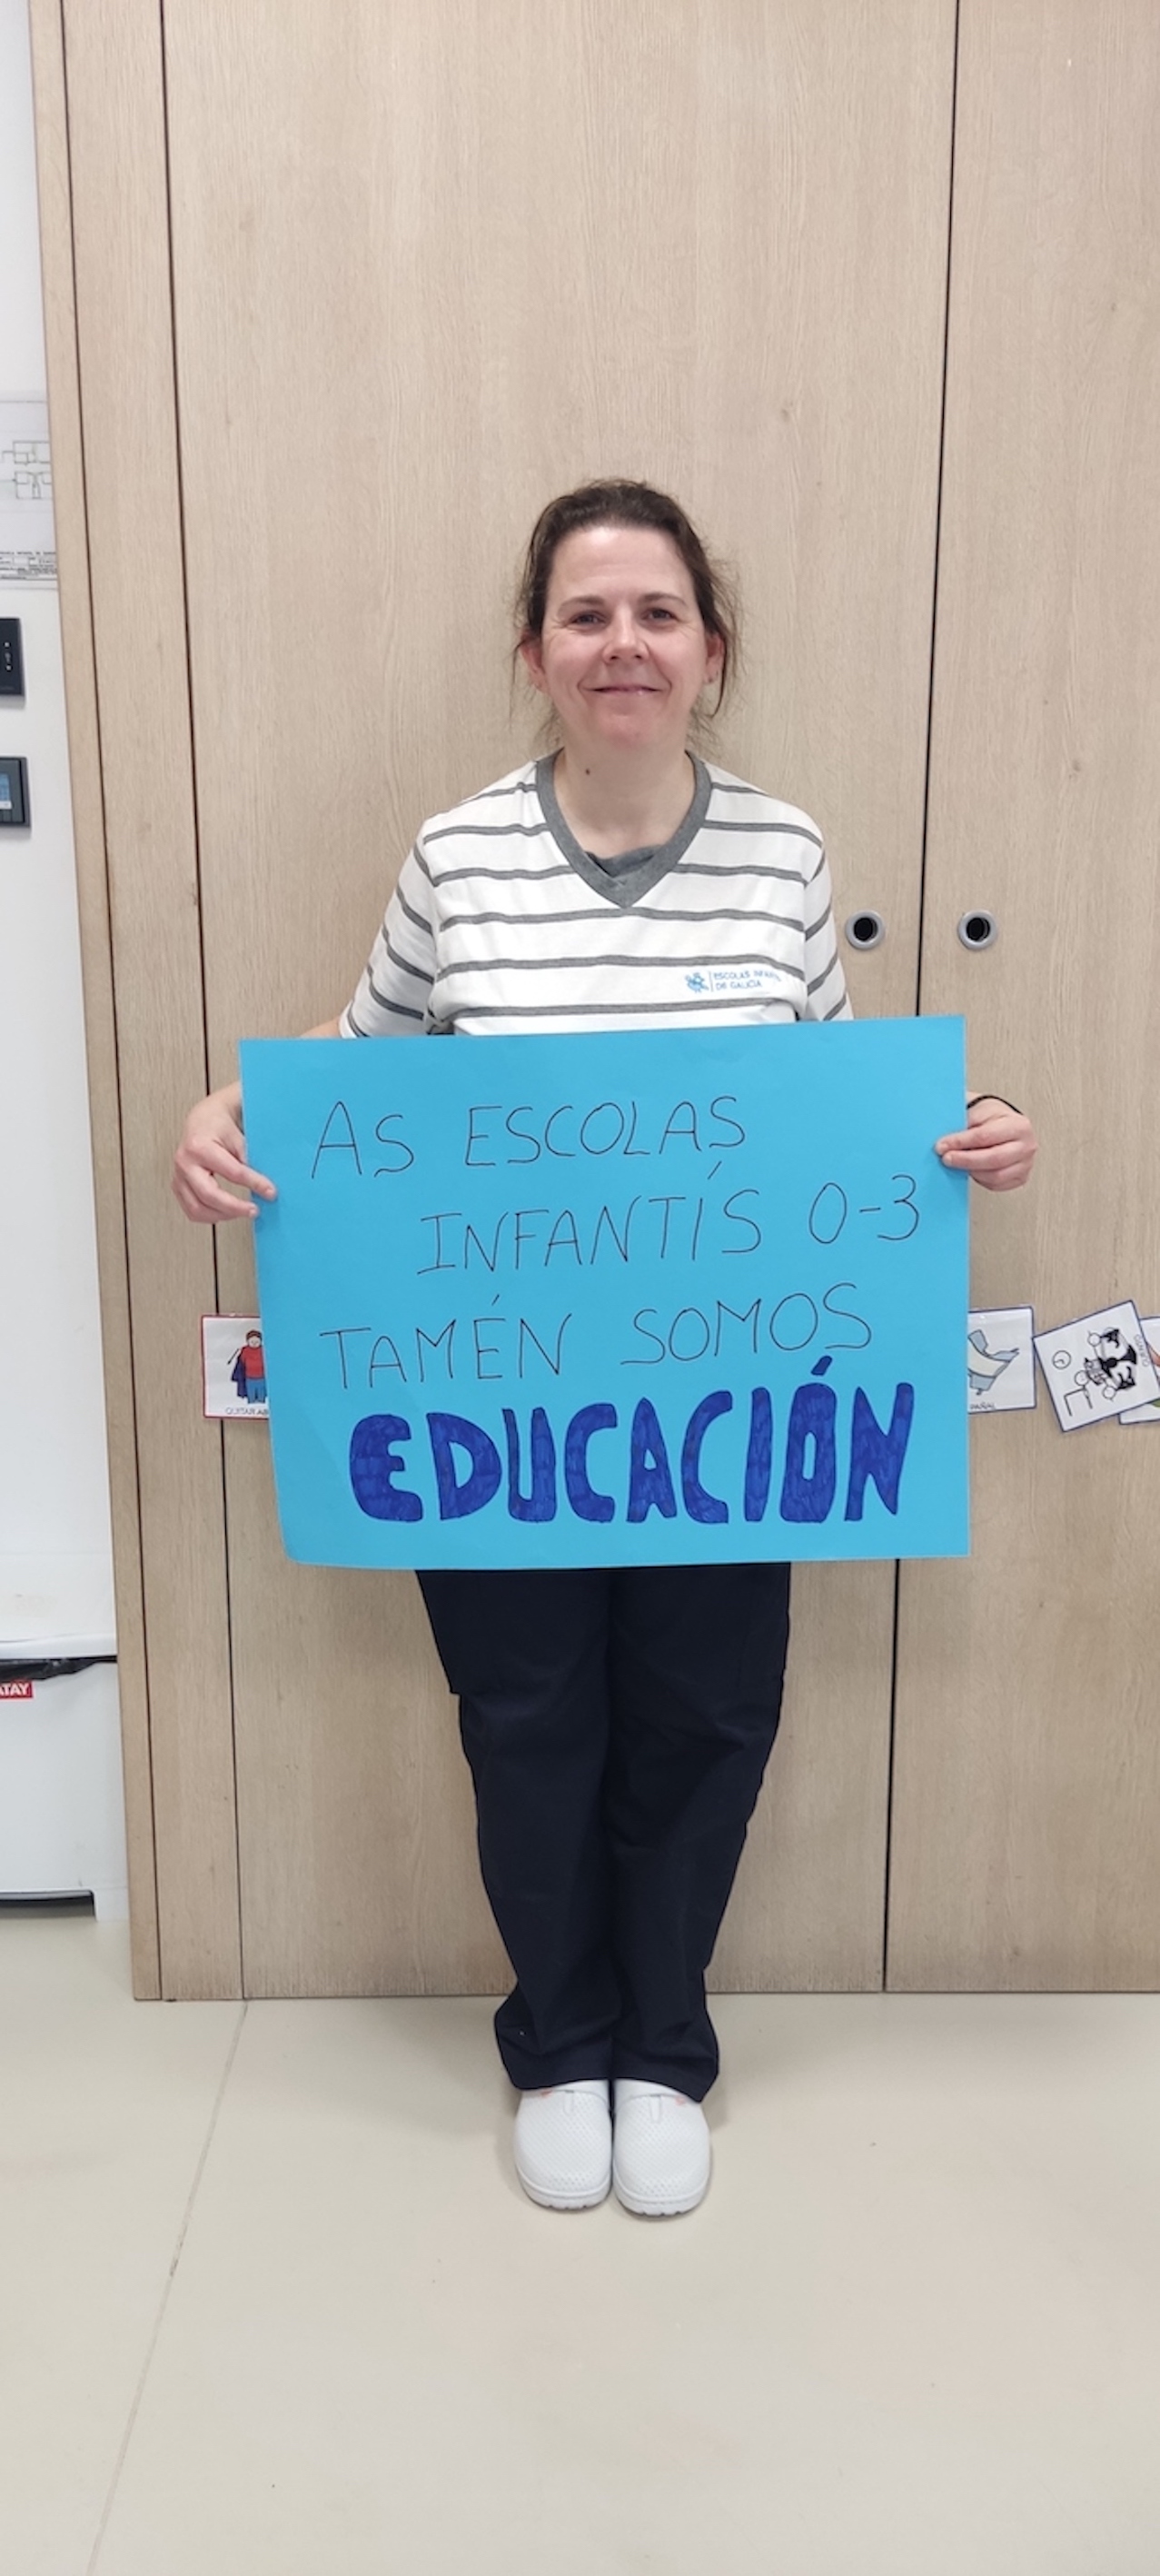 ESCOLAS INFANTÍS
DE GALICIA
AS ESCOLAS
INFANTÍS 0-3
TAMÉN SOMOS
EDUCACIÓN
QUITAR
PAÑAL